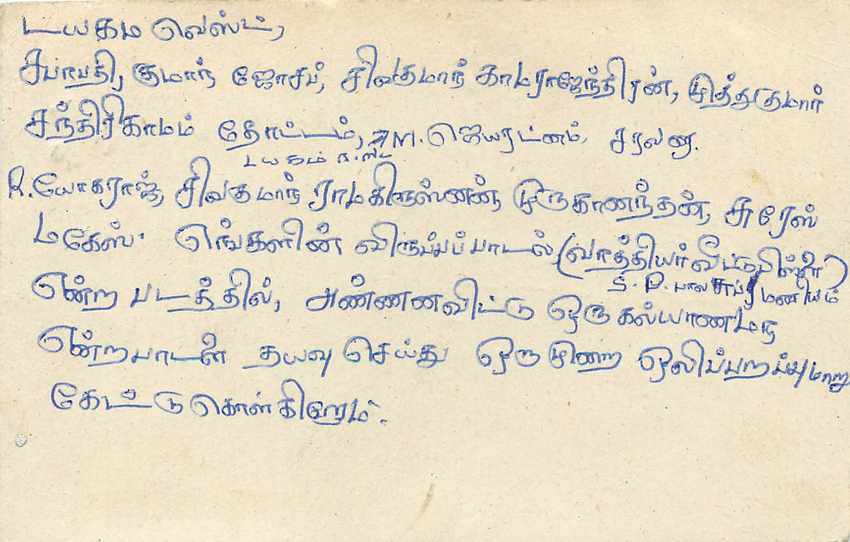 டயகம வெஸ்ட்,
சபாபதி, குமார், ஜோசப், சிவகுமார் காமராஜேந்திரன், முத்துகுமார்
சந்திரிகாமம் தோட்டம், M. ஜெயரட்னம், சரலா.
டயகம
R. யோகராஜ், சிவகுமார் ராமகிருஸ்ணன், முருகானந்தன், சுரேஸ்
மகேஸ். எங்களின் விருப்பப்பாடல் (வாத்தியார் வீட்டுபிள்ளை)
S. P. பாலசுப்ரமணியம்
என்ற படத்தில், அண்ணனவிட்டு ஒரு கல்யாணமாந
என்றபாடலை தயவு செய்து ஒரு முறை ஒலிப்பறப்புமாறு
கேட்டுகொள்கிறோம்.